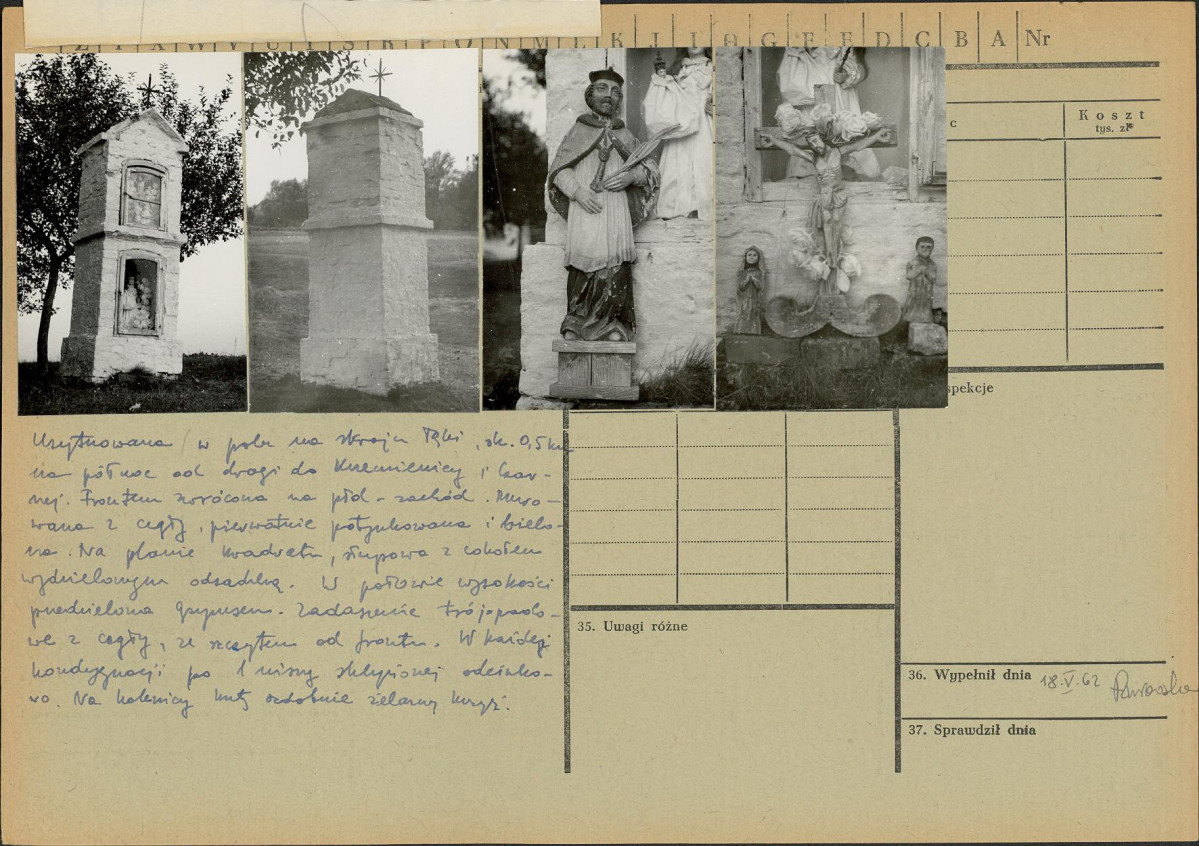 Z Y X W V U T S R P O N M L K J I H G F E D C B A Nr
c
Koszt
tys. zł
spekcje
Usytuowana w polu na skraju łąki, ok. 0,5 km
na północ od drogi do Krzemienicy i Czar-
nej. Frontem zwrócona na płd-zachód. Muro-
wana z cegły, pierwotnie potynkowana i bielo-
na. Na planie kwadratu, słupowa z cokołem
wydzielonym odsadzką. W połowie wysokości
przedzielona gzymsem. Zadaszenie trójspado-
we z cegły, ze szczytem od frontu. W każdej
kondygnacji po 1 niszy sklepionej odcinko-
wo. Na kalenicy kuty ozdobnie żelazny krzyż.
35. Uwagi różne
36. Wypełnił dnia 18.V.62
37. Sprawdził dnia